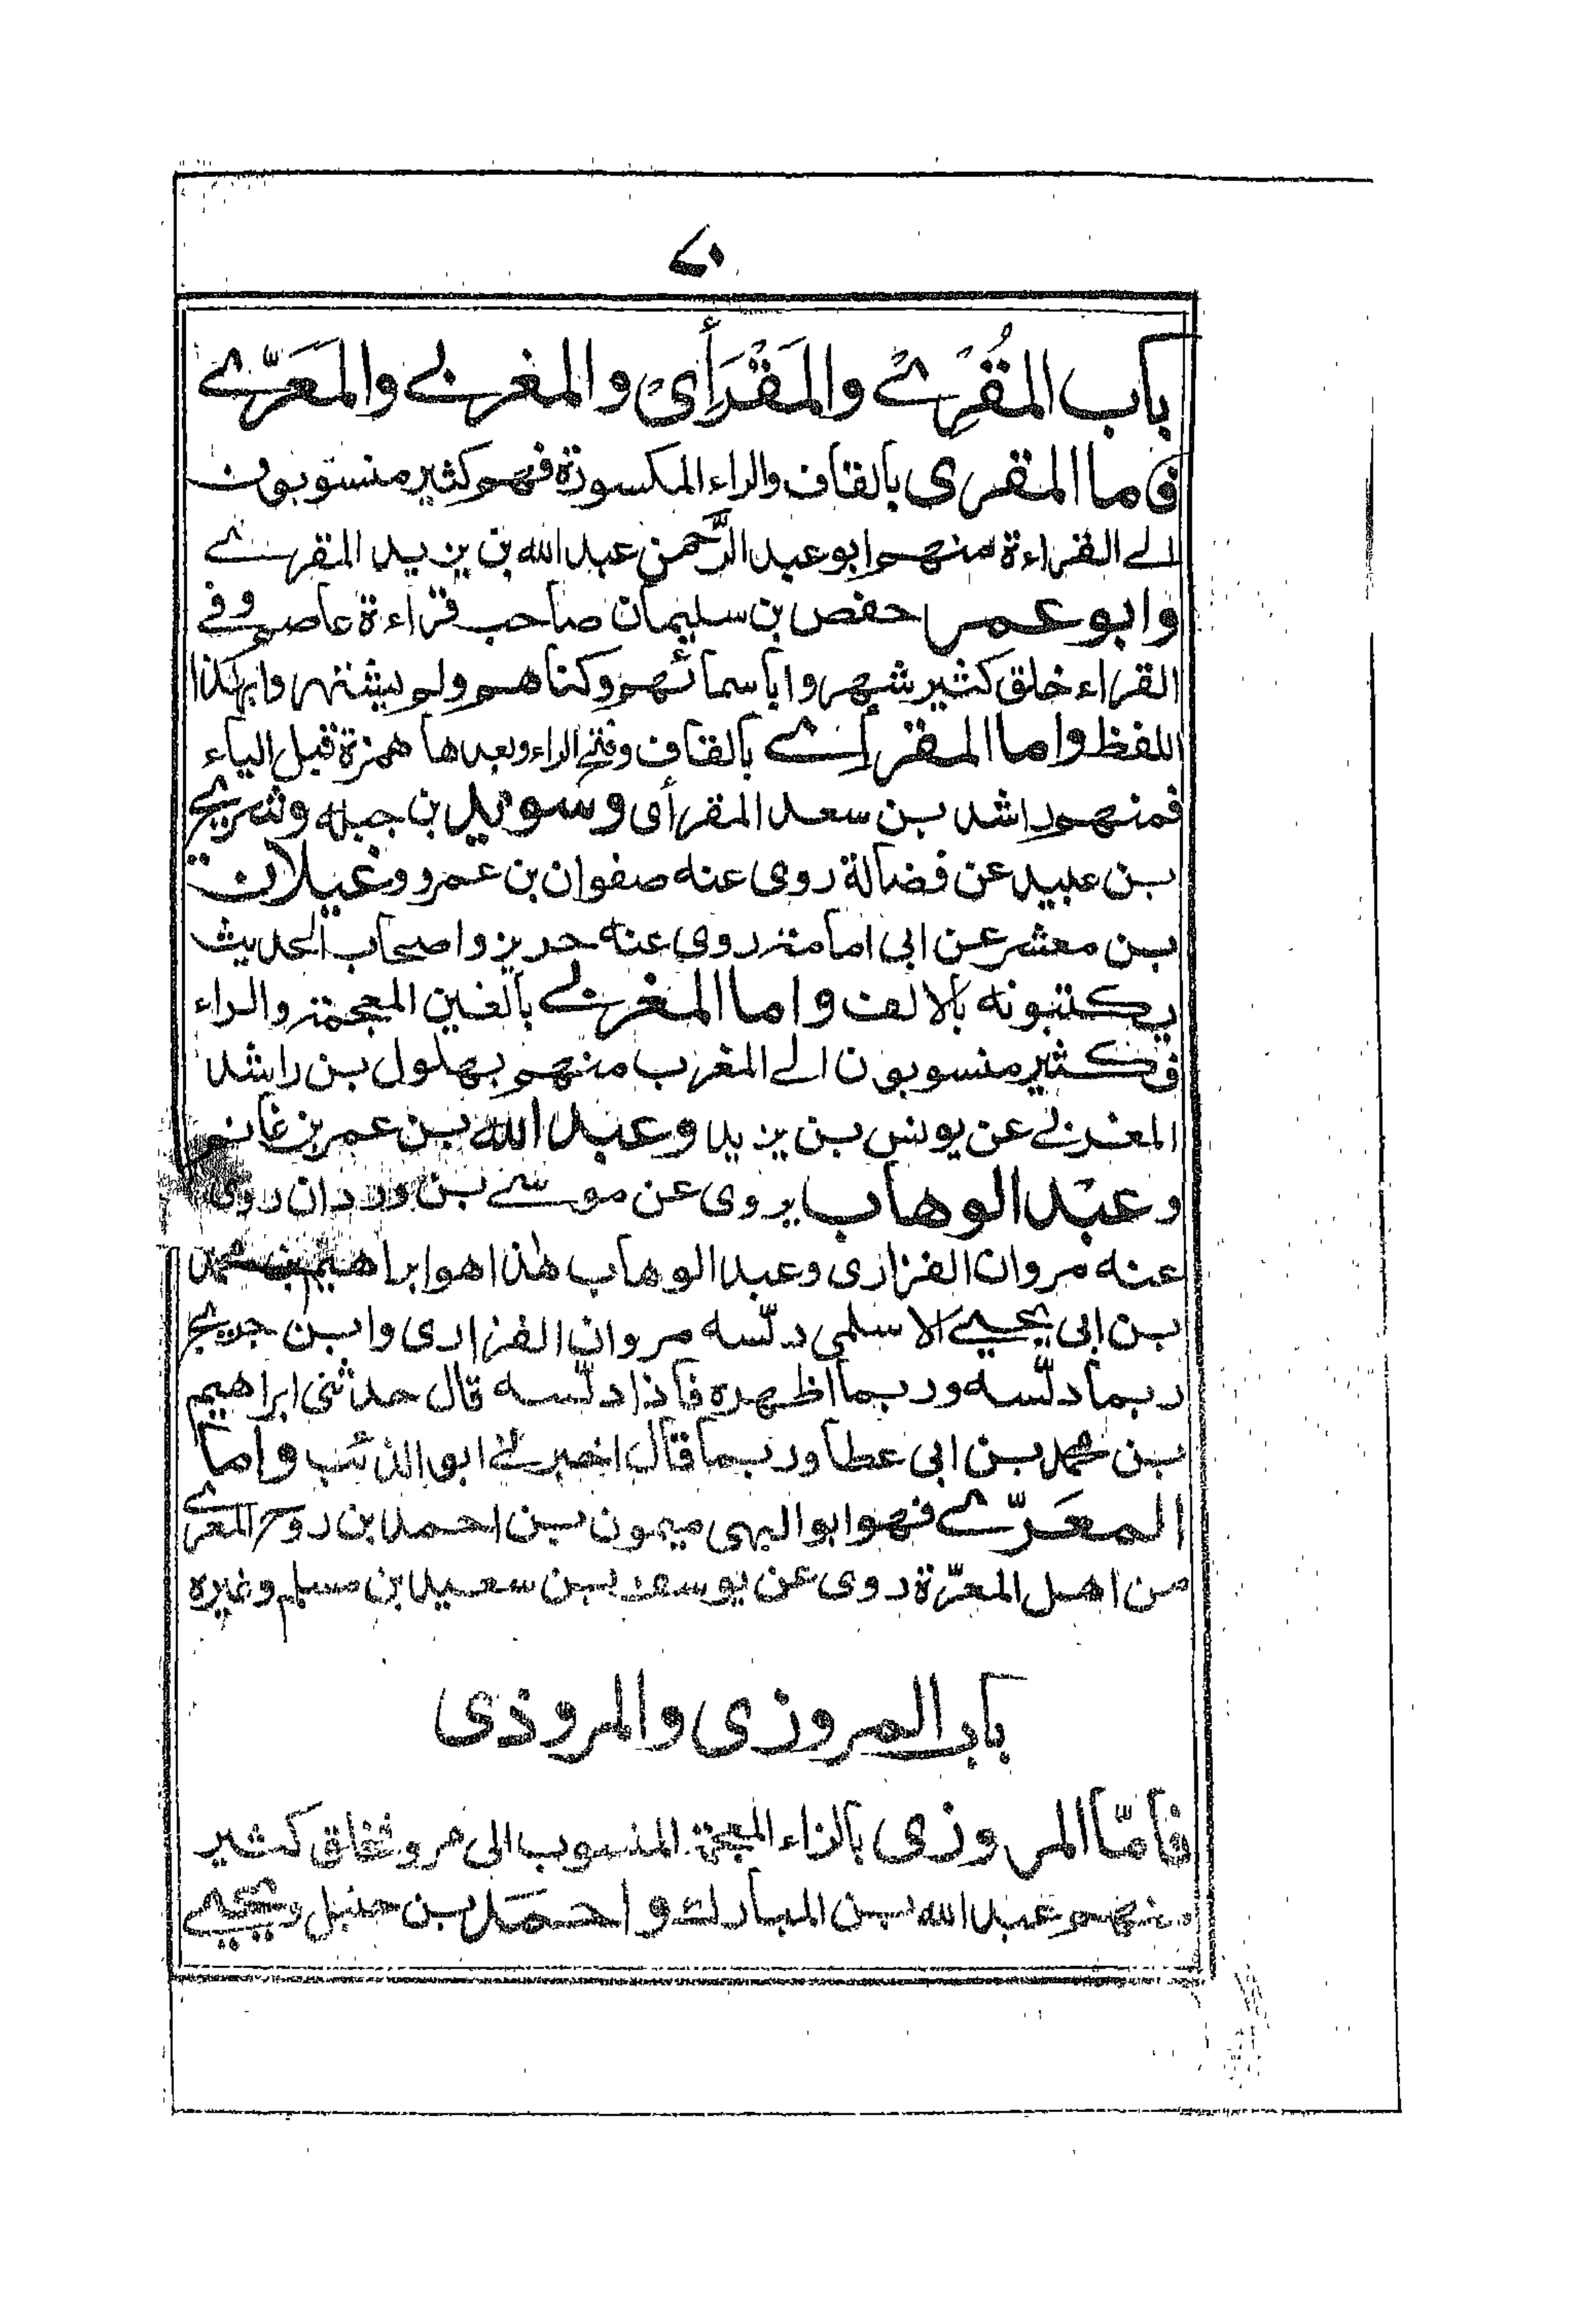 ٧٠
باب المُقْرِئ والمَقْرَأى والمغربي والمَعَرّي
فاما المقرى بالقاف والراء المكسورة فهو كثير منسوبون
الى القراءة منهم ابو عبد الرَّحمن عبد الله بن يزيد المقرئ
وابو عمر حفص بن سليمان صاحب قراءة عاصم وفي
القراء خلق كثير شهروا باسمائهم وكناهم ولم يشتهروا بهذا
اللفظ واما المقرأي بالقاف وفتح الراء وبعدها همزة قبل الياء
فمنهم راشد بن سعد المقرأى وسويد بن جبلة وشريح
بن عبيد عن فضالة روى عنه صفوان بن عمرو وغيلان
بن معشر عن ابى امامة روى عنه حريز واصحاب الحديث
يكتبونه بالالف واما المغربي بالغين المعجمة والراء
فكثير منسوبون الى المغرب منهم بهلول بن راشد
المغربي عن يونس بن يزيد وعبد الله بن عمر بن غانم
وعبد الوهاب يروى عن موسى بن وردان روى
عنه مروان الفزارى وعبد الوهاب هذا هو ابراهيم بن محمد
بن ابى يحيى الاسلمى دلّسه مروان الفزارى وابن جريج
ربما دلّسه وربما اظهره فاذا دلّسه قال حدثنى ابراهيم
بن محمد بن ابى عطا وربما قال اخبرني ابو الذئب واما
المعَرّي فهو ابو البهى ميمون بن احمد بن روح المعري
من اهل المعرّة روى عن يوسف بن سعيد بن مسلم وغيره
باب المروزى والمروذى
فامّا المروزى بالزاء المعجمة المنسوب الى مرو فخلق كثير
منهم عبد الله بن المبارك واحمد بن حنبل ويحيى